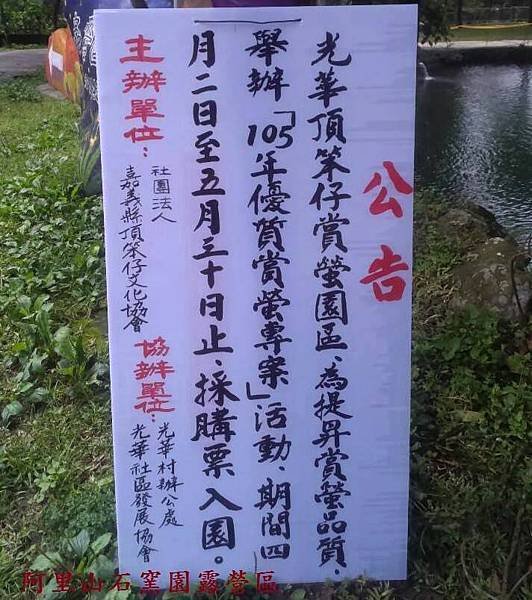 公告
光華頂笨仔賞螢園區、為提昇賞螢品質、
舉辦「105年優質賞螢專案」活動、期間四
月二日至五月三十日止、採購票入園。
主辦單位：
社團法人
嘉義縣頂笨仔文化協會
協辦單位：
光華村辦公處
光華社區發展協會
阿里山石窯園露營區